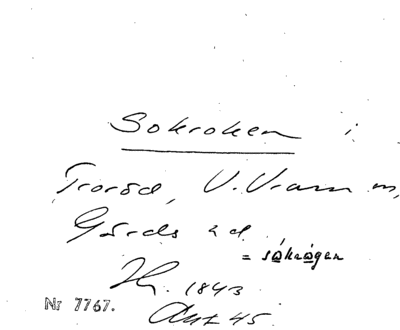 Sokroken i
Troröd, V. Vram m,
Gärds hd.
= såkrågen
1843
Nr 7767.
Ant 45.